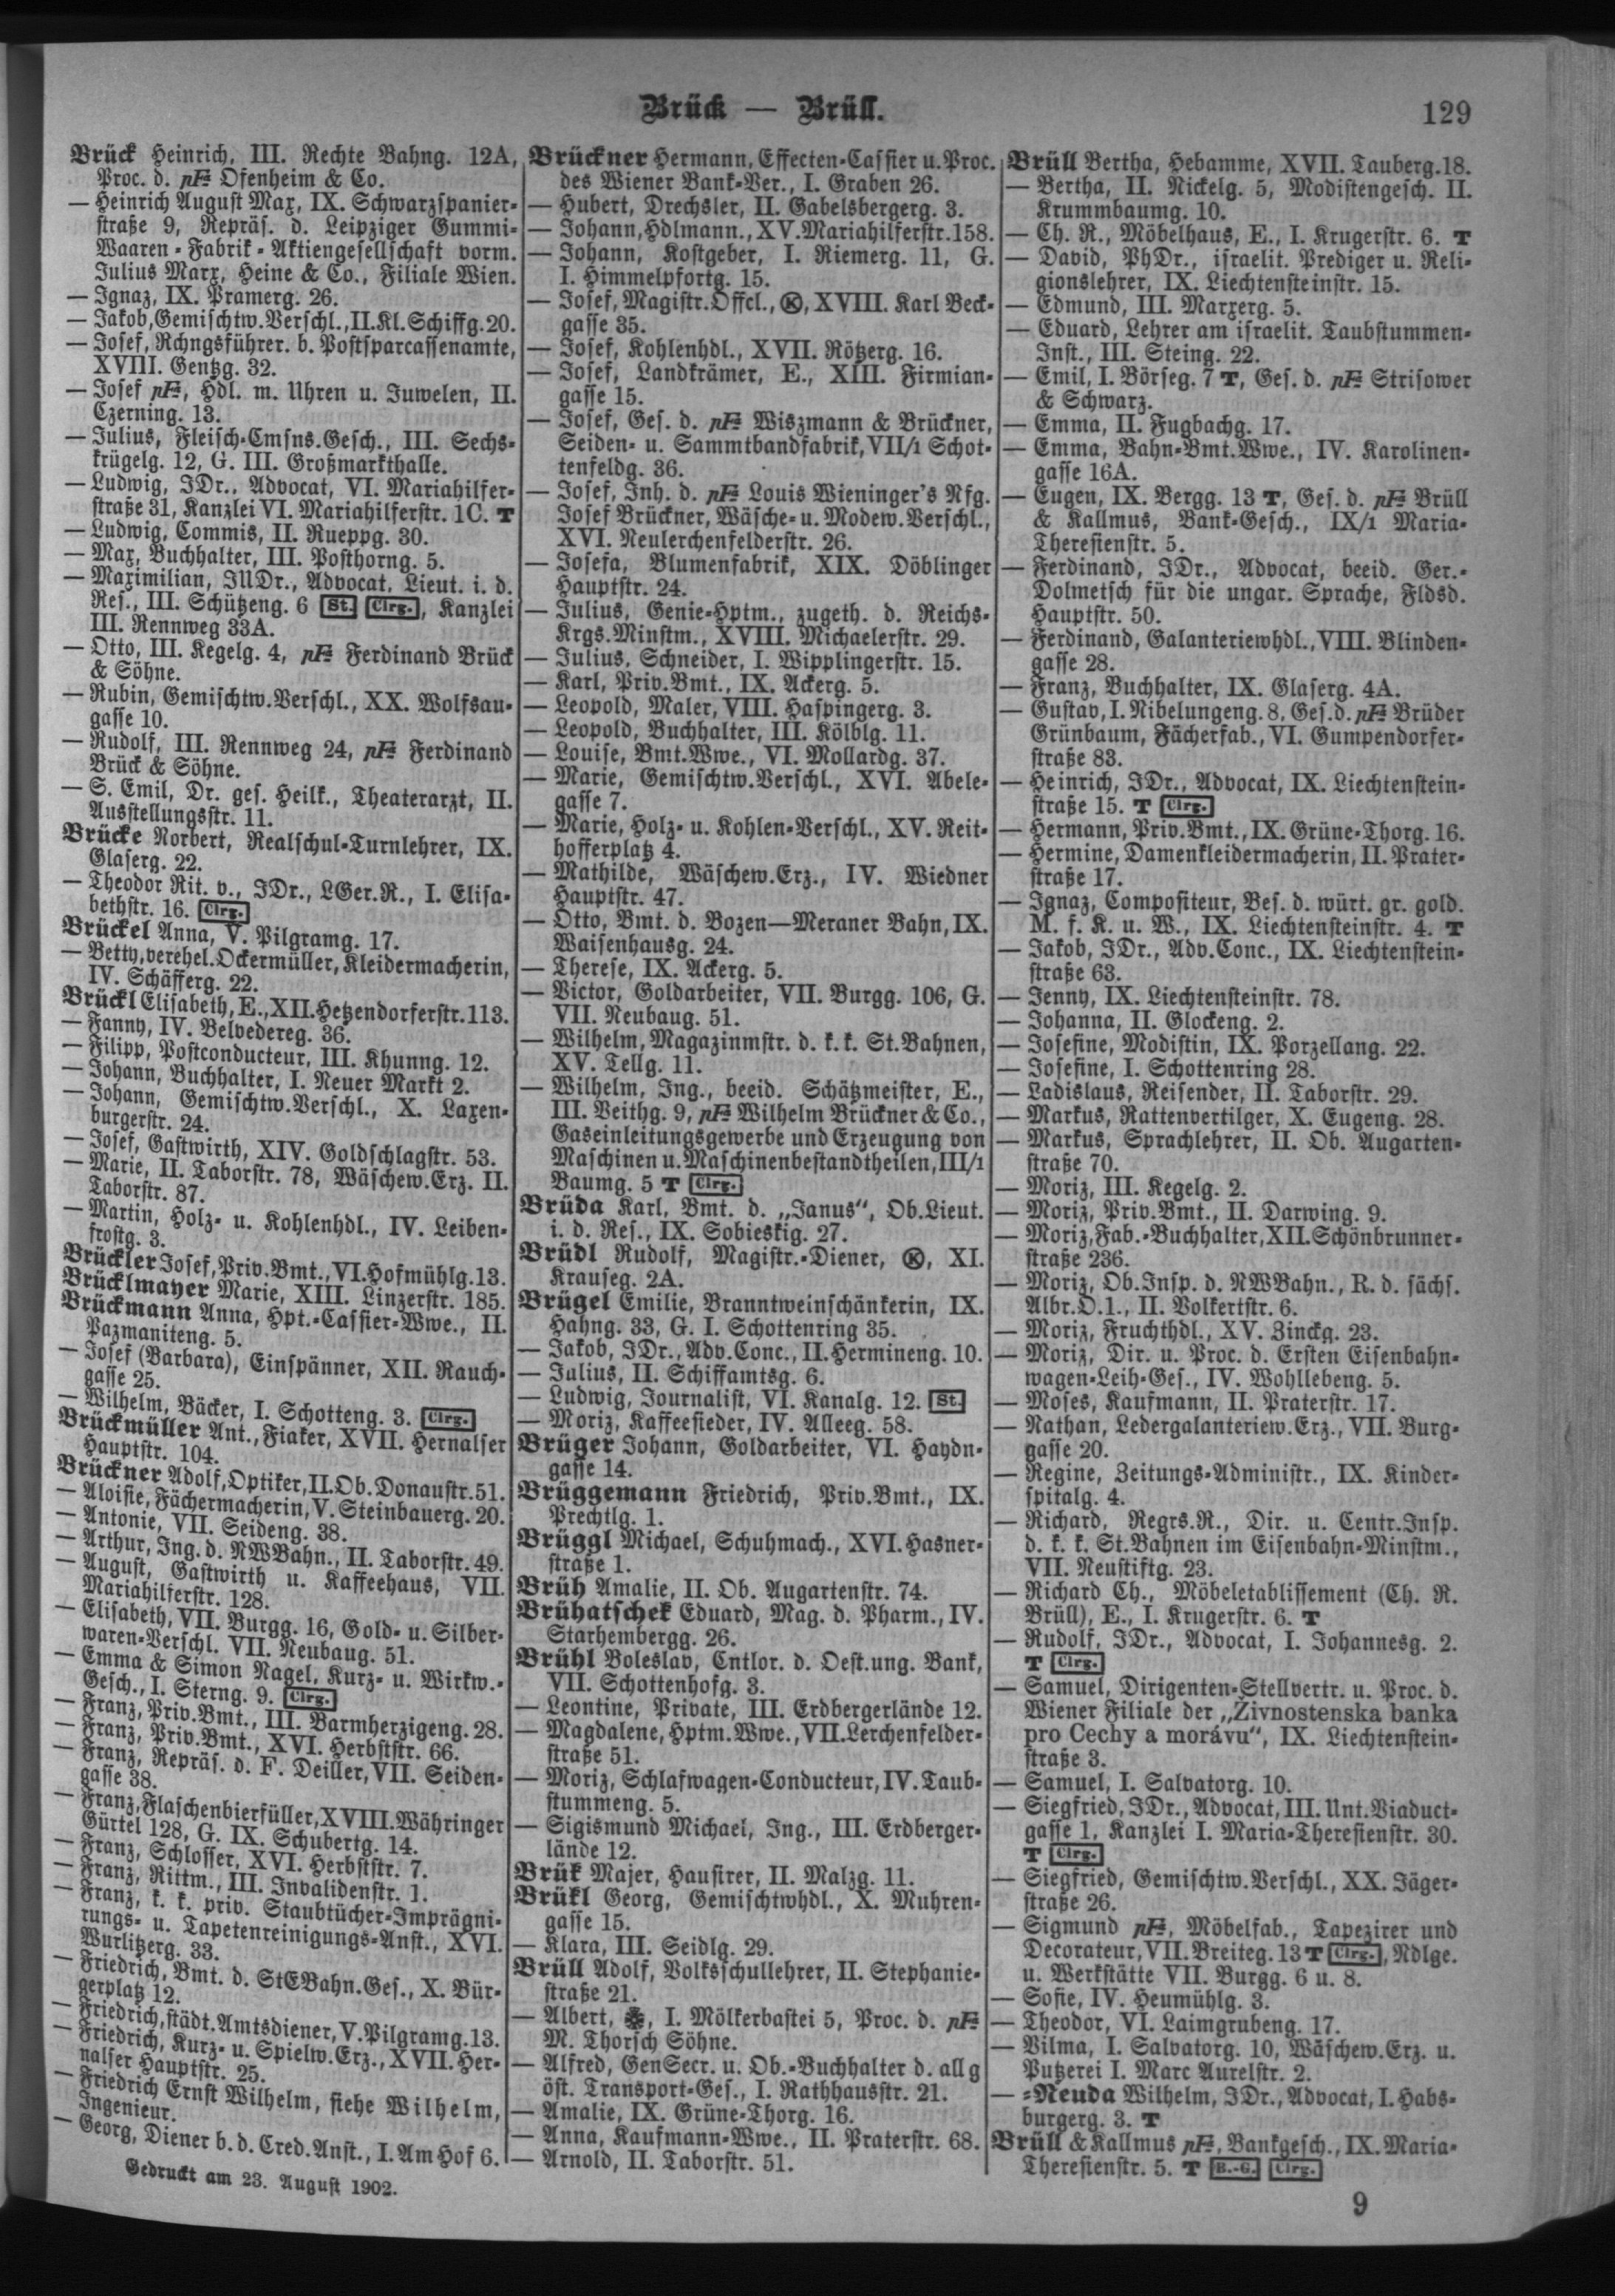 Brück — Brüll.
129
Brück Heinrich, III. Rechte Bahng. 12A,
Proc. d. pF Ofenheim & Co.
— Heinrich August Max, IX. Schwarzspanier-
straße 9, Repräs. d. Leipziger Gummi-
Waaren-Fabrik-Aktiengesellschaft vorm.
Julius Marx, Heine & Co., Filiale Wien.
— Ignaz, IX. Pramerg. 26.
— Jakob, Gemischtw.Verschl., II. Kl. Schiffg. 20.
— Josef, Rchngsführer. b. Postsparcassenamte,
XVIII. Gentzg. 32.
— Josef pF, Hdl. m. Uhren u. Juwelen, II.
Czerning. 13.
— Julius, Fleisch-Cmsns.Gesch., III. Sechs-
krügelg. 12, G. III. Großmarkthalle.
— Ludwig, JDr., Advocat, VI. Mariahilfer-
straße 31, Kanzlei VI. Mariahilferstr. 1C. T
— Ludwig, Commis, II. Rueppg. 30.
— Max, Buchhalter, III. Posthorng. 5.
— Maximilian, JUDr., Advocat, Lieut. i. d.
Res., III. Schützeng. 6 St. Clrg., Kanzlei
III. Rennweg 33A.
— Otto, III. Kegelg. 4, pF Ferdinand Brück
& Söhne.
— Rubin, Gemischtw.Verschl., XX. Wolfsau-
gasse 10.
— Rudolf, III. Rennweg 24, pF Ferdinand
Brück & Söhne.
— S. Emil, Dr. ges. Heilk., Theaterarzt, II.
Ausstellungsstr. 11.
Brücke Norbert, Realschul-Turnlehrer, IX.
Glaserg. 22.
— Theodor Rit. v., JDr., LGer.R., I. Elisa-
bethstr. 16. Clrg.
Brückel Anna, V. Pilgramg. 17.
— Betty, verehel. Ockermüller, Kleidermacherin,
IV. Schäfferg. 22.
Brückl Elisabeth, E., XII. Hetzendorferstr. 113.
— Fanny, IV. Belvedereg. 36.
— Filipp, Postconducteur, III. Khunng. 12.
— Johann, Buchhalter, I. Neuer Markt 2.
— Johann, Gemischtw.Verschl., X. Laxen-
burgerstr. 24.
— Josef, Gastwirth, XIV. Goldschlagstr. 53.
— Marie, II. Taborstr. 78, Wäschew.Erz. II.
Taborstr. 87.
— Martin, Holz- u. Kohlenhdl., IV. Leiben-
frostg. 3.
Brückler Josef, Priv.Bmt., VI. Hofmühlg. 13.
Brücklmayer Marie, XIII. Linzerstr. 185.
Brückmann Anna, Hpt.-Cassier-Wwe., II.
Pazmaniteng. 5.
— Josef (Barbara), Einspänner, XII. Rauch-
gasse 25.
— Wilhelm, Bäcker, I. Schotteng. 3. Clrg.
Brückmüller Ant., Fiaker, XVII. Hernalser
Hauptstr. 104.
Brückner Adolf, Optiker, II. Ob. Donaustr. 51.
— Aloisie, Fächermacherin, V. Steinbauerg. 20.
— Antonie, VII. Seideng. 38.
— Arthur, Ing. d. NWBahn., II. Taborstr. 49.
— August, Gastwirth u. Kaffeehaus, VII.
Mariahilferstr. 128.
— Elisabeth, VII. Burgg. 16, Gold- u. Silber-
waren-Verschl. VII. Neubaug. 51.
— Emma & Simon Nagel, Kurz- u. Wirkw.-
Gesch., I. Sterng. 9. Clrg.
— Franz, Priv.Bmt., III. Barmherzigeng. 28.
— Franz, Priv.Bmt., XVI. Herbststr. 66.
— Franz, Repräs. d. F. Deiller, VII. Seiden-
gasse 38.
— Franz, Flaschenbierfüller, XVIII. Währinger
Gürtel 128, G. IX. Schubertg. 14.
— Franz, Schlosser, XVI. Herbststr. 7.
— Franz, Rittm., III. Invalidenstr. 1.
— Franz, k. k. priv. Staubtücher-Imprägni-
rungs- u. Tapetenreinigungs-Anst., XVI.
Wurlitzerg. 33.
— Friedrich, Bmt. d. StEBahn.Ges., X. Bür-
gerplatz 12.
— Friedrich, städt. Amtsdiener, V. Pilgramg. 13.
— Friedrich, Kurz- u. Spielw.Erz., XVII. Her-
nalser Hauptstr. 25.
— Friedrich Ernst Wilhelm, siehe Wilhelm,
Ingenieur.
— Georg, Diener b. d. Cred.Anst., I. Am Hof 6.
Gedruckt am 23. August 1902.
Brückner Hermann, Effecten-Cassier u. Proc.
des Wiener Bank-Ver., I. Graben 26.
— Hubert, Drechsler, II. Gabelsbergerg. 3.
— Johann, Hdlmann., XV. Mariahilferstr. 158.
— Johann, Kostgeber, I. Riemerg. 11, G.
I. Himmelpfortg. 15.
— Josef, Magistr.Offcl., K, XVIII. Karl Beck-
gasse 35.
— Josef, Kohlenhdl., XVII. Rötzerg. 16.
— Josef, Landkrämer, E., XIII. Firmian-
gasse 15.
— Josef, Ges. d. pF Wiszmann & Brückner,
Seiden- u. Sammtbandfabrik, VII/1 Schot-
tenfeldg. 36.
— Josef, Inh. d. pF Louis Wieninger's Nfg.
Josef Brückner, Wäsche- u. Modew.Verschl.,
XVI. Neulerchenfelderstr. 26.
— Josefa, Blumenfabrik, XIX. Döblinger
Hauptstr. 24.
— Julius, Genie-Hptm., zugeth. d. Reichs-
Krgs.Minstm., XVIII. Michaelerstr. 29.
— Julius, Schneider, I. Wipplingerstr. 15.
— Karl, Priv.Bmt., IX. Ackerg. 5.
— Leopold, Maler, VIII. Haspingerg. 3.
— Leopold, Buchhalter, III. Kölblg. 11.
— Louise, Bmt.Wwe., VI. Mollardg. 37.
— Marie, Gemischtw.Verschl., XVI. Abele-
gasse 7.
— Marie, Holz- u. Kohlen-Verschl., XV. Reit-
hofferplatz 4.
— Mathilde, Wäschew.Erz., IV. Wiedner
Hauptstr. 47.
— Otto, Bmt. d. Bozen—Meraner Bahn, IX.
Waisenhausg. 24.
— Therese, IX. Ackerg. 5.
— Victor, Goldarbeiter, VII. Burgg. 106, G.
VII. Neubaug. 51.
— Wilhelm, Magazinmstr. d. k. k. St.Bahnen,
XV. Tellg. 11.
— Wilhelm, Ing., beeid. Schätzmeister, E.,
III. Veithg. 9, pF Wilhelm Brückner & Co.,
Gaseinleitungsgewerbe und Erzeugung von
Maschinen u. Maschinenbestandtheilen, III/1
Baumg. 5 T Clrg.
Brüda Karl, Bmt. d. „Janus“, Ob.Lieut.
i. d. Res., IX. Sobieskig. 27.
Brüdl Rudolf, Magistr.-Diener, K, XI.
Krauseg. 2A.
Brügel Emilie, Branntweinschänkerin, IX.
Hahng. 33, G. I. Schottenring 35.
— Jakob, JDr., Adv.Conc., II. Hermineng. 10.
— Julius, II. Schiffamtsg. 6.
— Ludwig, Journalist, VI. Kanalg. 12. St.
— Moriz, Kaffeesieder, IV. Alleeg. 58.
Brüger Johann, Goldarbeiter, VI. Haydn-
gasse 14.
Brüggemann Friedrich, Priv.Bmt., IX.
Prechtlg. 1.
Brüggl Michael, Schuhmach., XVI. Hasner-
straße 1.
Brüh Amalie, II. Ob. Augartenstr. 74.
Brühatschek Eduard, Mag. d. Pharm., IV.
Starhembergg. 26.
Brühl Boleslav, Cntlor. d. Oest.ung. Bank,
VII. Schottenhofg. 3.
— Leontine, Private, III. Erdbergerlände 12.
— Magdalene, Hptm.Wwe., VII. Lerchenfelder-
straße 51.
— Moriz, Schlafwagen-Conducteur, IV. Taub-
stummeng. 5.
— Sigismund Michael, Ing., III. Erdberger-
lände 12.
Brük Majer, Hausirer, II. Malzg. 11.
Brükl Georg, Gemischtwhdl., X. Muhren-
gasse 15.
— Klara, III. Seidlg. 29.
Brüll Adolf, Volksschullehrer, II. Stephanie-
straße 21.
— Albert, I. Mölkerbastei 5, Proc. d. pF
M. Thorsch Söhne.
— Alfred, GenSecr. u. Ob.-Buchhalter d. allg
öst. Transport-Ges., I. Rathhausstr. 21.
— Amalie, IX. Grüne-Thorg. 16.
— Anna, Kaufmann-Wwe., II. Praterstr. 68.
— Arnold, II. Taborstr. 51.
Brüll Bertha, Hebamme, XVII. Tauberg. 18.
— Bertha, II. Nickelg. 5, Modistengesch. II.
Krummbaumg. 10.
— Ch. R., Möbelhaus, E., I. Krugerstr. 6. T
— David, PhDr., israelit. Prediger u. Reli-
gionslehrer, IX. Liechtensteinstr. 15.
— Edmund, III. Marxerg. 5.
— Eduard, Lehrer am israelit. Taubstummen-
Inst., III. Steing. 22.
— Emil, I. Börseg. 7 T, Ges. d. pF Strisower
& Schwarz.
— Emma, II. Fugbachg. 17.
— Emma, Bahn-Bmt.Wwe., IV. Karolinen-
gasse 16A.
— Eugen, IX. Bergg. 13 T, Ges. d. pF Brüll
& Kallmus, Bank-Gesch., IX/1 Maria-
Theresienstr. 5.
— Ferdinand, JDr., Advocat, beeid. Ger.-
Dolmetsch für die ungar. Sprache, Fldsd.
Hauptstr. 50.
— Ferdinand, Galanteriewhdl., VIII. Blinden-
gasse 28.
— Franz, Buchhalter, IX. Glaserg. 4A.
— Gustav, I. Nibelungeng. 8, Ges. d. pF Brüder
Grünbaum, Fächerfab., VI. Gumpendorfer-
straße 83.
— Heinrich, JDr., Advocat, IX. Liechtenstein-
straße 15. T Clrg.
— Hermann, Priv.Bmt., IX. Grüne-Thorg. 16.
— Hermine, Damenkleidermacherin, II. Prater-
straße 17.
— Ignaz, Compositeur, Bes. d. würt. gr. gold.
M. f. K. u. W., IX. Liechtensteinstr. 4. T
— Jakob, JDr., Adv.Conc., IX. Liechtenstein-
straße 63.
— Jenny, IX. Liechtensteinstr. 78.
— Johanna, II. Glockeng. 2.
— Josefine, Modistin, IX. Porzellang. 22.
— Josefine, I. Schottenring 28.
— Ladislaus, Reisender, II. Taborstr. 29.
— Markus, Rattenvertilger, X. Eugeng. 28.
— Markus, Sprachlehrer, II. Ob. Augarten-
straße 70.
— Moriz, III. Kegelg. 2.
— Moriz, Priv.Bmt., II. Darwing. 9.
— Moriz, Fab.-Buchhalter, XII. Schönbrunner-
straße 236.
— Moriz, Ob.Insp. d. NWBahn., R. d. sächs.
Albr.O.1., II. Volkertstr. 6.
— Moriz, Fruchthdl., XV. Zinckg. 23.
— Moriz, Dir. u. Proc. d. Ersten Eisenbahn-
wagen-Leih-Ges., IV. Wohllebeng. 5.
— Moses, Kaufmann, II. Praterstr. 17.
— Nathan, Ledergalanteriew.Erz., VII. Burg-
gasse 20.
— Regine, Zeitungs-Administr., IX. Kinder-
spitalg. 4.
— Richard, Regrs.R., Dir. u. Centr.Insp.
d. k. k. St.Bahnen im Eisenbahn-Minstm.,
VII. Neustiftg. 23.
— Richard Ch., Möbeletablissement (Ch. R.
Brüll), E., I. Krugerstr. 6. T
— Rudolf, JDr., Advocat, I. Johannesg. 2.
T Clrg.
— Samuel, Dirigenten-Stellvertr. u. Proc. d.
Wiener Filiale der „Živnostenska banka
pro Cechy a morávu“, IX. Liechtenstein-
straße 3.
— Samuel, I. Salvatorg. 10.
— Siegfried, JDr., Advocat, III. Unt. Viaduct-
gasse 1, Kanzlei I. Maria-Theresienstr. 30.
T Clrg.
— Siegfried, Gemischtw.Verschl., XX. Jäger-
straße 26.
— Sigmund pF, Möbelfab., Tapezirer und
Decorateur, VII. Breiteg. 13 T Clrg., Ndlge.
u. Werkstätte VII. Burgg. 6 u. 8.
— Sofie, IV. Heumühlg. 3.
— Theodor, VI. Laimgrubeng. 17.
— Vilma, I. Salvatorg. 10, Wäschew.Erz. u.
Putzerei I. Marc Aurelstr. 2.
— -Neuda Wilhelm, JDr., Advocat, I. Habs-
burgerg. 3. T
Brüll & Kallmus pF, Bankgesch., IX. Maria-
Theresienstr. 5. T B.-G. Clrg.
9